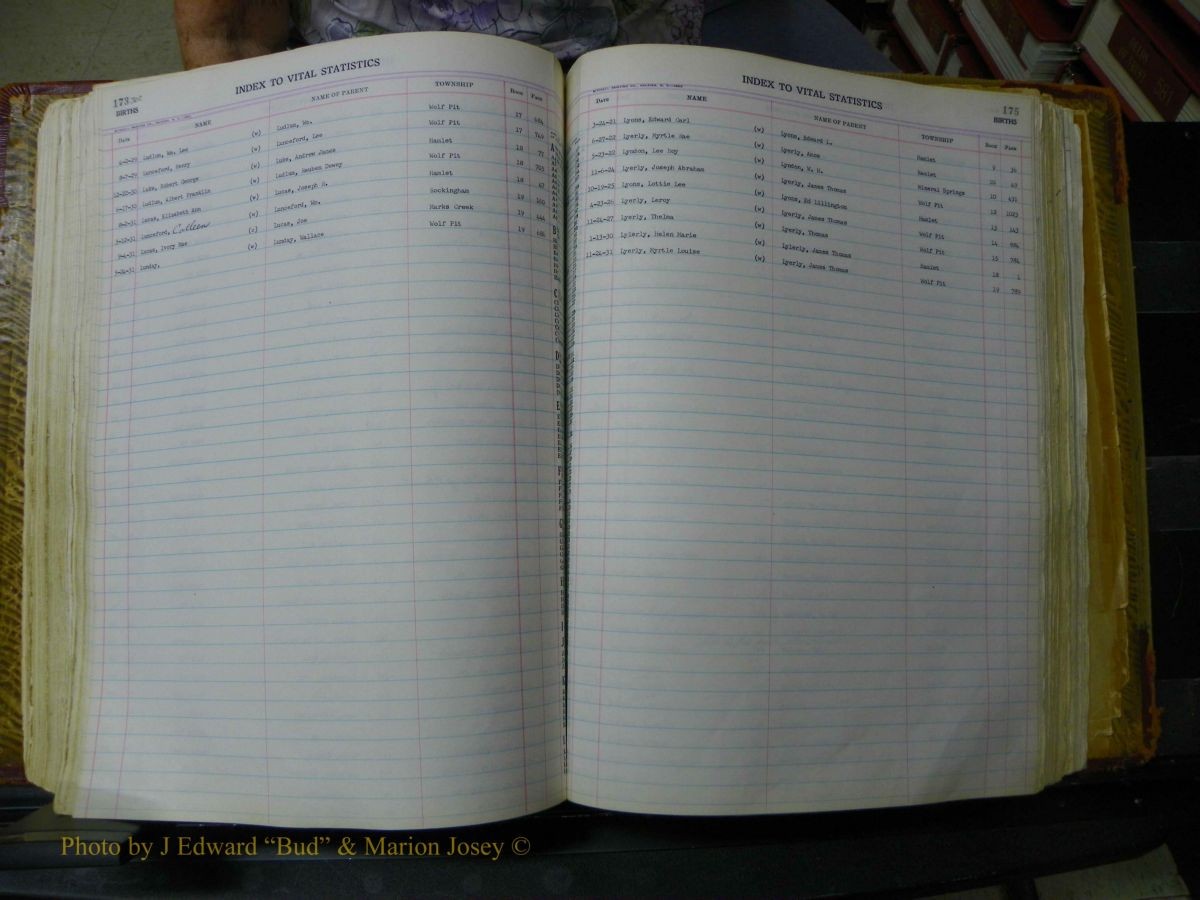 173
BIRTHS
INDEX TO VITAL STATISTICS
Date NAME NAME OF PARENT TOWNSHIP Book Page
6-2-29 Ludlum, Wm. Lee (w) Ludlum, Wm. Wolf Pit 17 684
8-7-29 Lunceford, Henry (w) Lunceford, Lee Wolf Pit 17 749
12-22-30 Luke, Robert George (w) Luke, Andrew James Hamlet 18 77
Ludlum, Albert Franklin (w) Ludlum, Reuben Dewey Wolf Pit 18 703
8-2-31 Lucas, Elizabeth Ann (w) Lucas, Joseph H. Hamlet 18 47
Lunceford, Colleen (w) Lunceford, Wm. Rockingham 19 160
9-4-31 Lucas, Ivory Mae (c) Lucas, Joe Marks Creek 19 444
5-24-31 Lunday, (w) Lunday, Wallace Wolf Pit 19 686
INDEX TO VITAL STATISTICS
175
BIRTHS
Date NAME NAME OF PARENT TOWNSHIP Book Page
3-24-21 Lyons, Edward Carl (w) Lyons, Edward L. Hamlet 9 36
6-27-22 Lyerly, Myrtle Mae (w) Lyerly, Amos Hamlet 10 49
3-23-22 Lyndon, Lee Roy (w) Lyndon, W. H. Mineral Springs 10 431
11-6-24 Lyerly, Joseph Abraham (w) Lyerly, James Thomas Wolf Pit 12 1023
10-19-25 Lyons, Lottie Lee (w) Lyons, Ed Lillington Hamlet 13 143
4-23-26 Lyerly, Leroy (w) Lyerly, James Thomas Wolf Pit 14 684
11-24-27 Lyerly, Thelma (w) Lyerly, Thomas Wolf Pit 15 784
1-13-30 Lylerly, Helen Marie (w) Lylerly, James Thomas Hamlet 18 1
11-24-31 Lyerly, Myrtle Louise (w) Lyerly, James Thomas Wolf Pit 19 789
Photo by J Edward “Bud” & Marion Josey ©